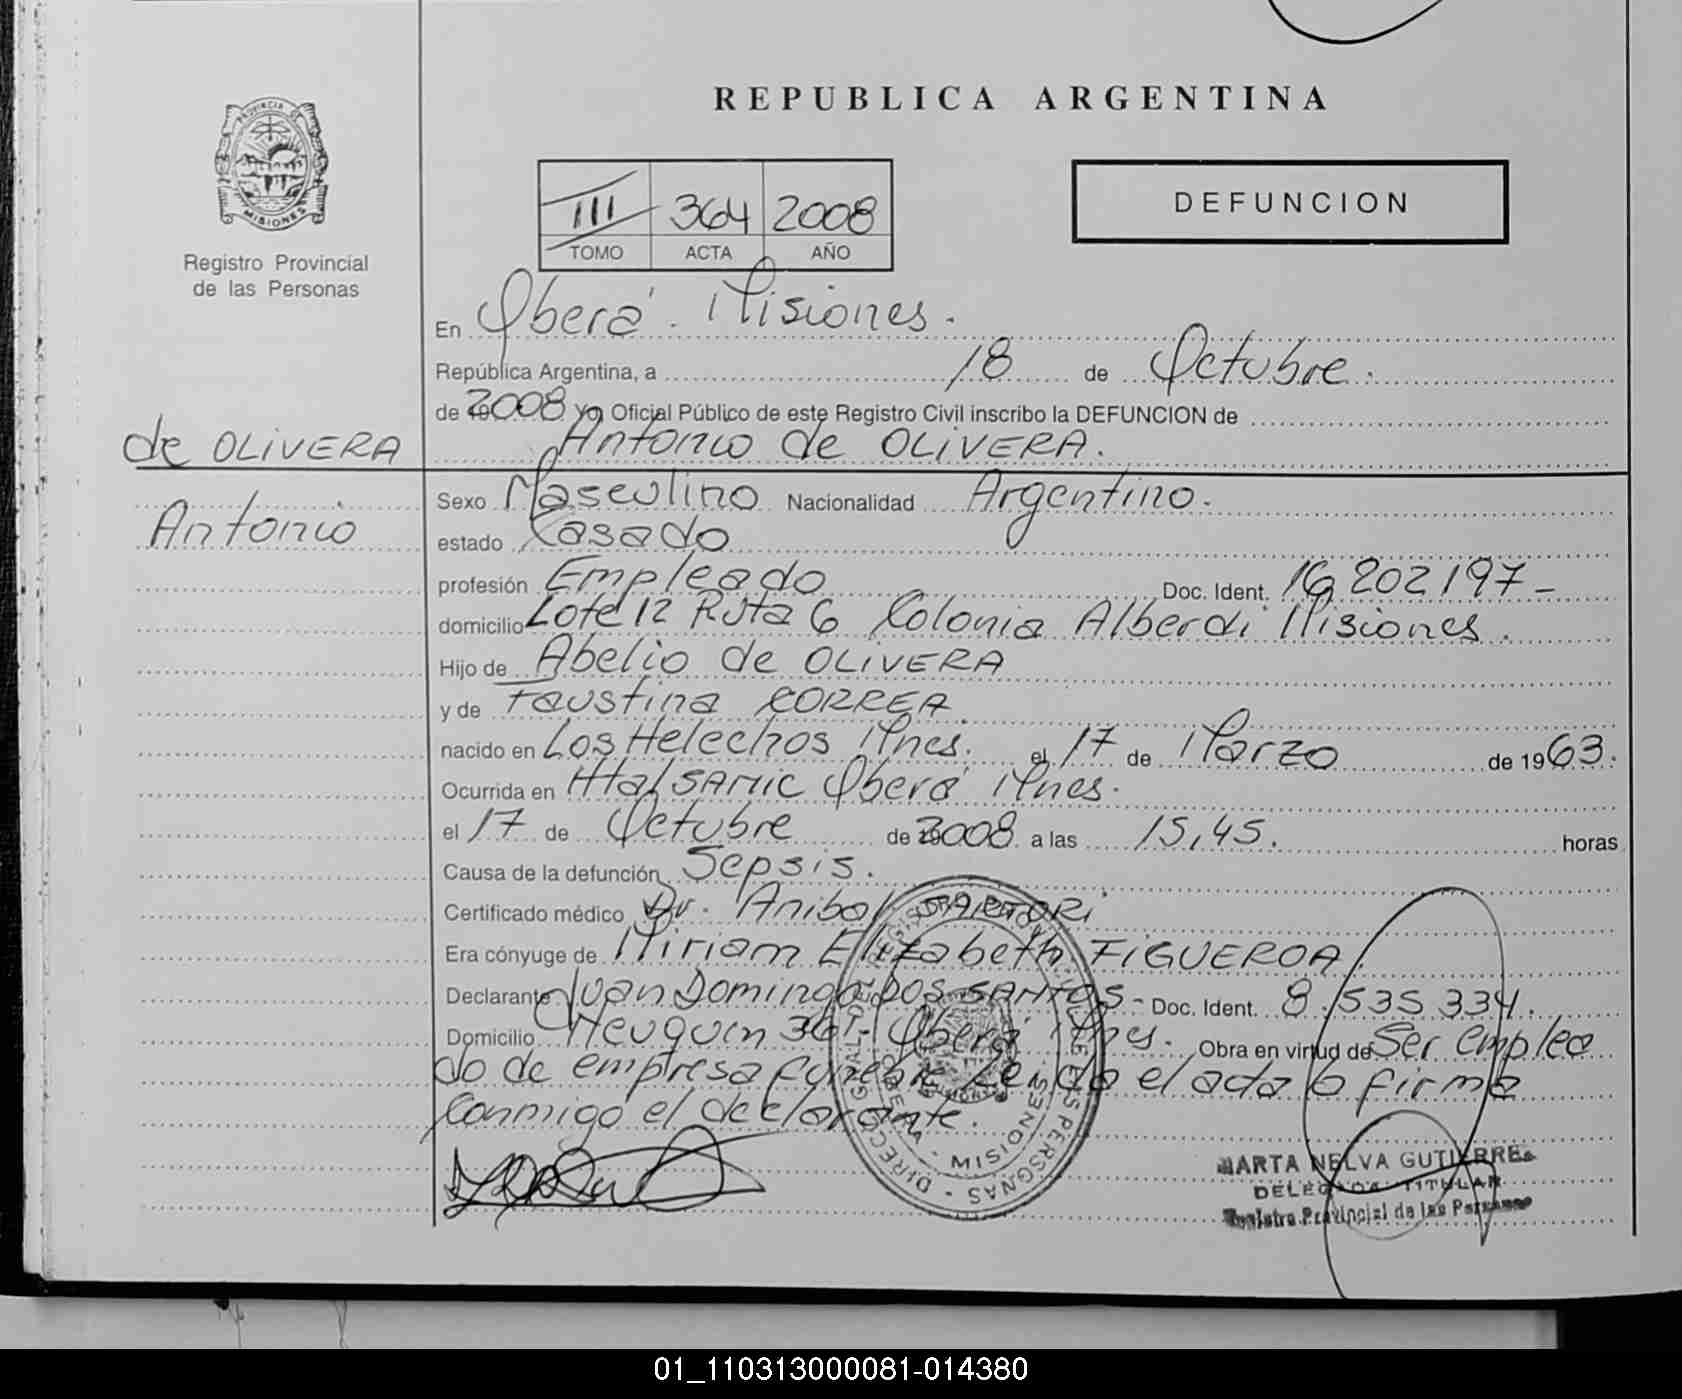 REPUBLICA ARGENTINA
PROVINCIA DE
MISIONES
Registro Provincial
de las Personas
III 364 2008
TOMO ACTA AÑO
DEFUNCION
En Oberá. Misiones.
República Argentina, a 18 de Octubre.
de 2008 Yo, Oficial Público de este Registro Civil inscribo la DEFUNCION de
de OLIVERA
Antonio de OLIVERA.
Antonio
Sexo Masculino Nacionalidad Argentino.
estado Casado
profesión Empleado Doc. Ident. 16 202 197-
domicilio Lote 12 Ruta 6 Colonia Alberdi Misiones.
Hijo de Abelio de OLIVERA
y de Faustina CORREA
nacido en Los Helechos Mnes. el 17 de Marzo de 1963.
Ocurrida en Htal SAMIC Oberá Mnes.
el 17 de Octubre de 2008 a las 15,45. horas
Causa de la defunción Sepsis.
Certificado médico Dr. Anibal SARTORI
Era cónyuge de Miriam Elizabeth FIGUEROA.
Declarante Juan Domingo DOS SANTOS- Doc. Ident. 8.535 334.
Domicilio Neuquin 361- Oberá Mnes. Obra en virtud de Ser emplea
do de empresa funebre Leida el acta la firma
conmigo el declarante.
MISIONES
MARTA NELVA GUTIERREZ
DELEGADA TITULAR
Registro Provincial de las Personas
01_110313000081-014380